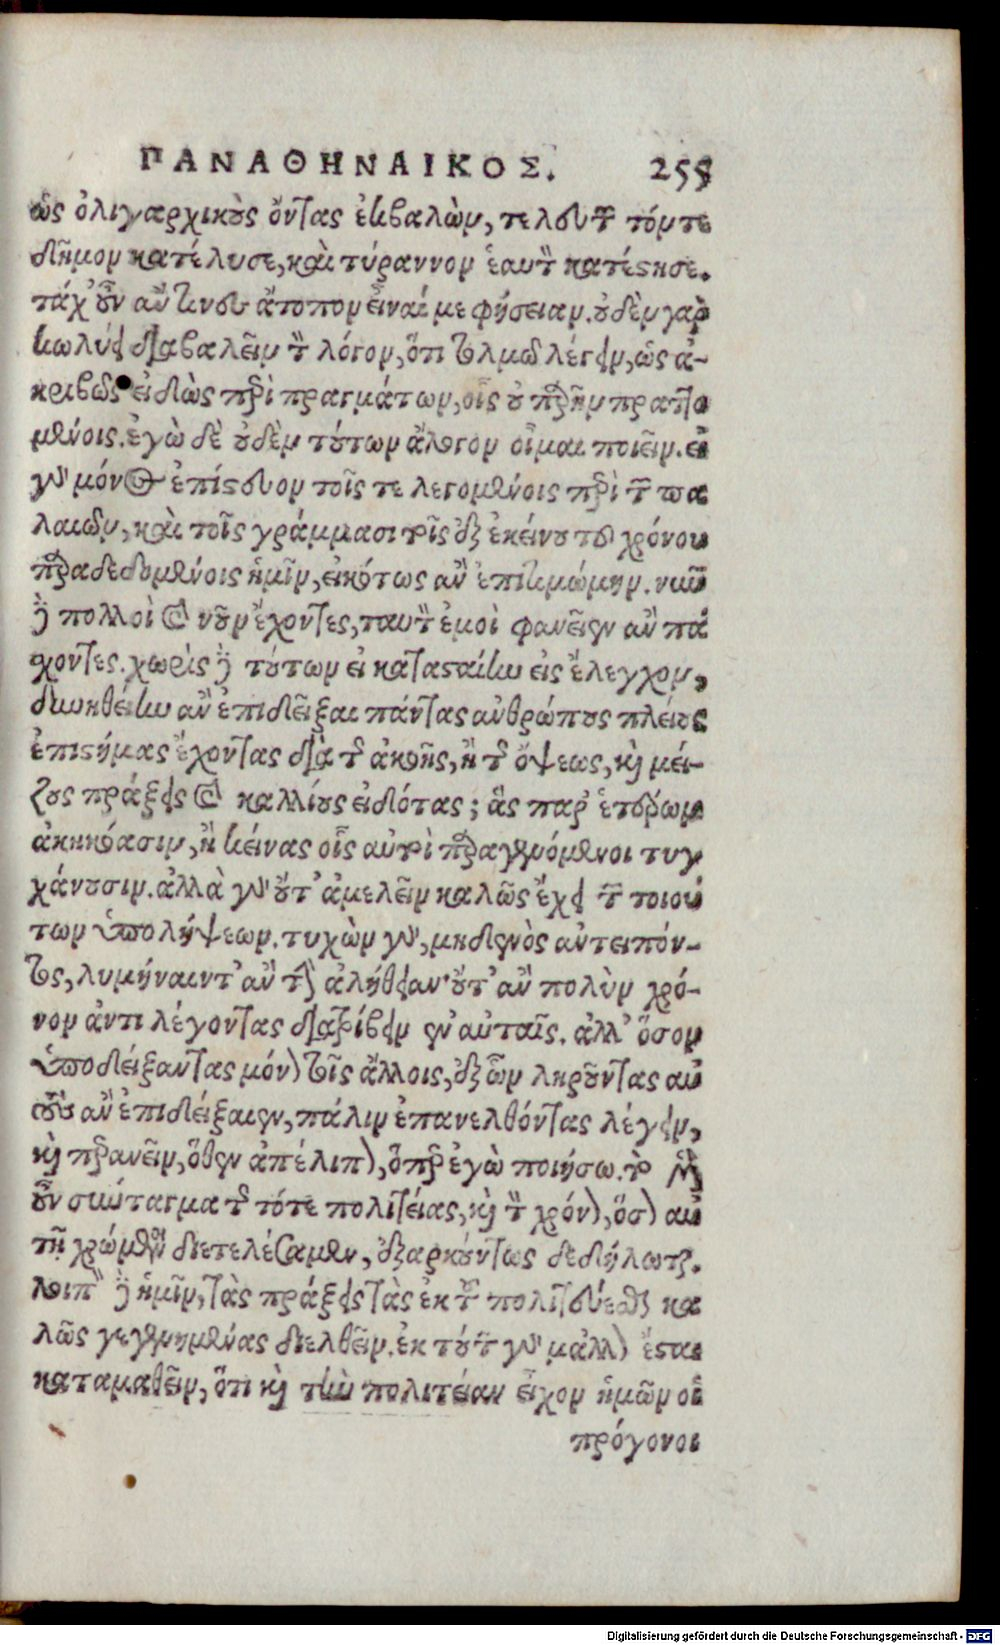 ΠΑΝΑΘΗΝΑΙΚΟΣ. 255
ὡς ὀλιγαρχικοὺς ὄντας ἐκβαλὼν, τελευτῶν τόν τε
δῆμον κατέλυσε, καὶ τύραννον ἑαυτὸν κατέστησε.
τάχ' οὖν ἄν τινες ἄτοπον εἶναί με φήσειαν. οὐδὲν γὰρ
κωλύει διαβαλεῖν τὸν λόγον, ὅτι τολμῶ λέγειν, ὡς ἀ-
κριβῶς εἰδὼς περὶ πραγμάτων, οἷς οὐ παρῆν πραττο
μένοις. ἐγὼ δὲ οὐδὲν τούτων ἄλογον οἶμαι ποιεῖν. εἰ
μὲν γὰρ μόνος ἐπίστευον τοῖς τε λεγομένοις περὶ τῶν πα
λαιῶν, καὶ τοῖς γράμμασι τοῖς ἐξ ἐκείνου τοῦ χρόνου
παραδεδομένοις ἡμῖν, εἰκότως ἂν ἐπιτιμώμην. νῦν
δὲ πολλοὶ καὶ νοῦν ἔχοντες, ταυτὸν ἐμοὶ φανεῖεν ἂν πά
χοντες. χωρὶς δὲ τούτων εἰ κατασταίην εἰς ἔλεγχον,
δυνηθείην ἂν ἐπιδεῖξαι πάντας ἀνθρώπους πλείους
ἐπιστήμας ἔχοντας διὰ τῆς ἀκοῆς, ἢ τῆς ὄψεως, καὶ μεί-
ζους πράξεις καὶ καλλίους εἰδότας; ἃς παρ' ἑτέρων
ἀκηκόασιν, ἢ κείνας οἷς αὐτοὶ παραγενόμενοι τυγ
χάνουσιν. ἀλλὰ γὰρ οὔτ' ἀμελεῖν καλῶς ἔχει τῶν τοιού
των ὑπολήψεων. τυχὸν γὰρ, μηδενὸς ἀντειπόν-
τος, λυμήναιντ' ἂν τὴν ἀλήθειαν· οὔτ' ἂν πολὺν χρό-
νον ἀντιλέγοντας διατρίβειν ἐν αὐταῖς. ἀλλ' ὅσον
ὑποδείξαντας μόνον τοῖς ἄλλοις, ἐξ ὧν ληροῦντας αὐ
τοὺς ἂν ἐπιδείξαιεν, πάλιν ἐπανελθόντας λέγειν,
καὶ περανεῖν, ὅθεν ἀπέλιπον, ὅπερ ἐγὼ ποιήσω. τὸ μὲν
οὖν σύνταγμα τῆς τότε πολιτείας, καὶ τὸν χρόνον, ὅσον αὐ
τῇ χρώμενοι διετελέσαμεν, ἐξαρκούντως δεδήλωται.
λοιπὸν δὲ ἡμῖν, τὰς πράξεις τὰς ἐκ τοῦ πολιτεύεσθαι κα
λῶς γεγενημένας διελθεῖν. ἐκ τούτων γὰρ μᾶλλον ἔσται
καταμαθεῖν, ὅτι καὶ τὴν πολιτείαν εἶχον ἡμῶν οἱ
πρόγονοι
Digitalisierung gefördert durch die Deutsche Forschungsgemeinschaft - DFG